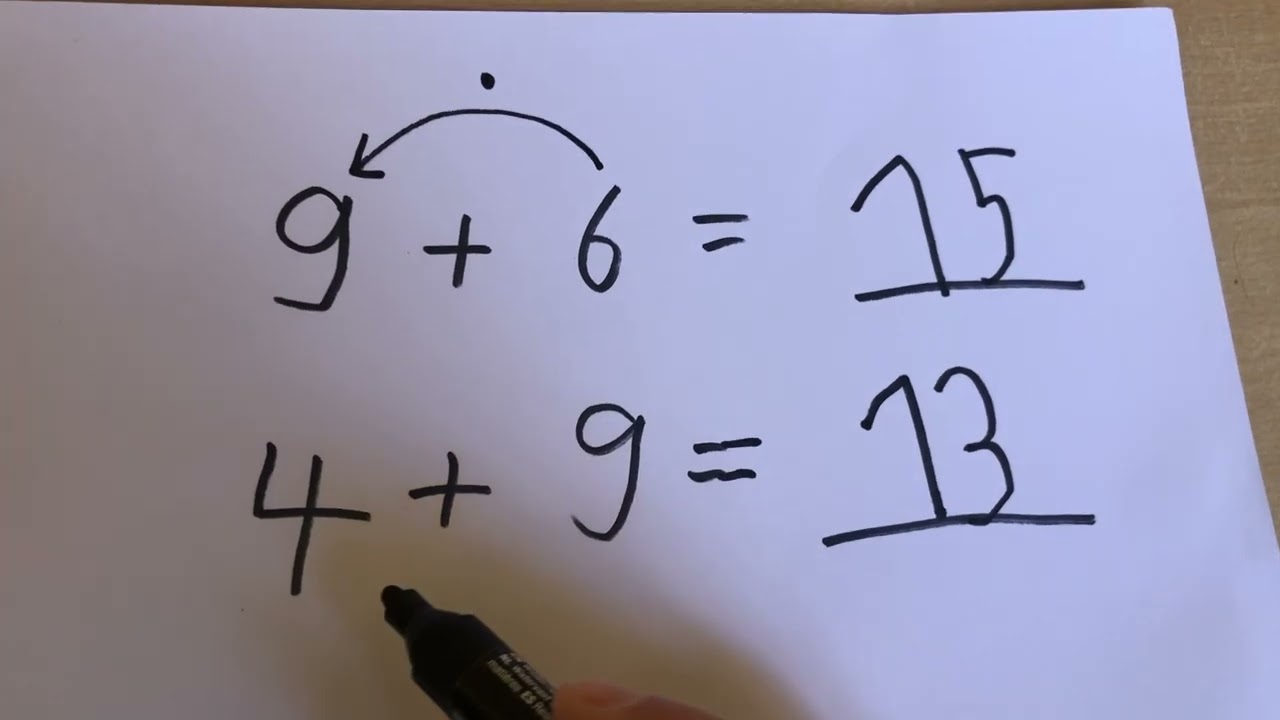 9 + 6 = 15
4 + 9 = 13